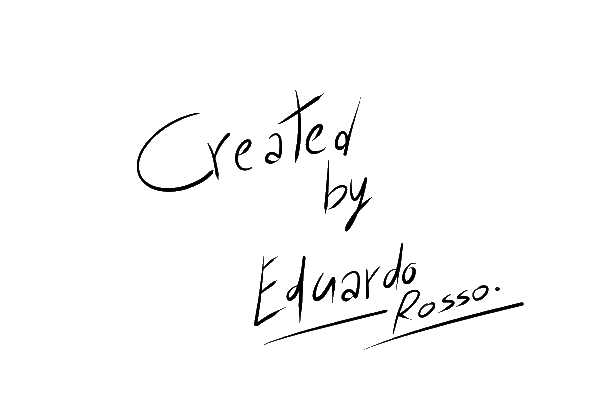 Created
by
Eduardo
Rosso.